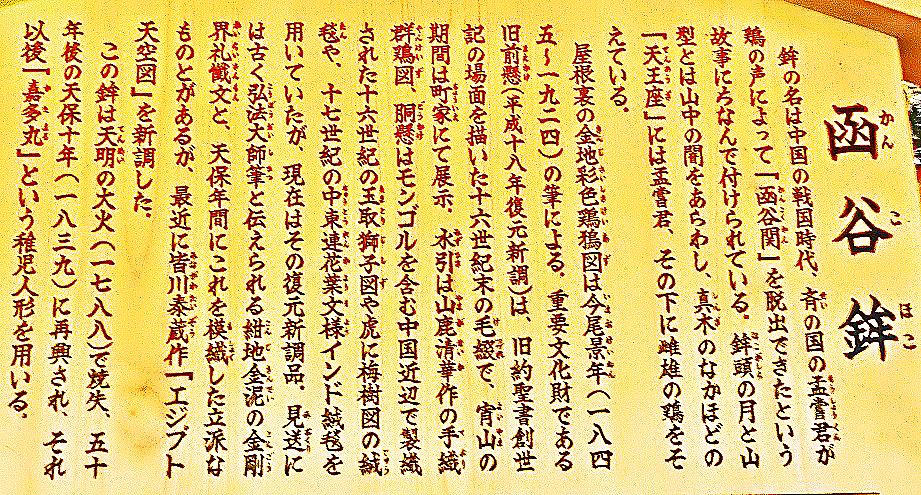 函谷鉾
かんこほこ
鉾の名は中国の戦国時代、斉の国の孟嘗君が
鶏の声によって「函谷関」を脱出できたという
故事にちなんで付けられている。鉾頭の月と山
型とは山中の闇をあらわし、真木のなかほどの
「天王座」には孟嘗君、その下に雌雄の鶏をそ
えている。
屋根裏の金地彩色鶏鴉図は今尾景年(一八四
五〜一九二四)の筆による。重要文化財である
旧前懸(平成十八年復元新調)は、旧約聖書創世
記の場面を描いた十六世紀末の毛綴で、宵山の
期間は町家にて展示。水引は山鹿清華作の手織
群鶏図、胴懸はモンゴルを含む中国近辺で製織
された十六世紀の玉取獅子図や虎に梅樹図の絨
毯や、十七世紀の中東連花葉文様インド絨毯を
用いていたが、現在はその復元新調品。見送に
は古く弘法大師筆と伝えられる紺地金泥の金剛
界礼懺文と、天保年間にこれを模織した立派な
ものとがあるが、最近に皆川泰蔵作「エジプト
天空図」を新調した。
この鉾は天明の大火(一七八八)で焼失、五十
年後の天保十年(一八三九)に再興され、それ
以後「嘉多丸」という稚児人形を用いる。